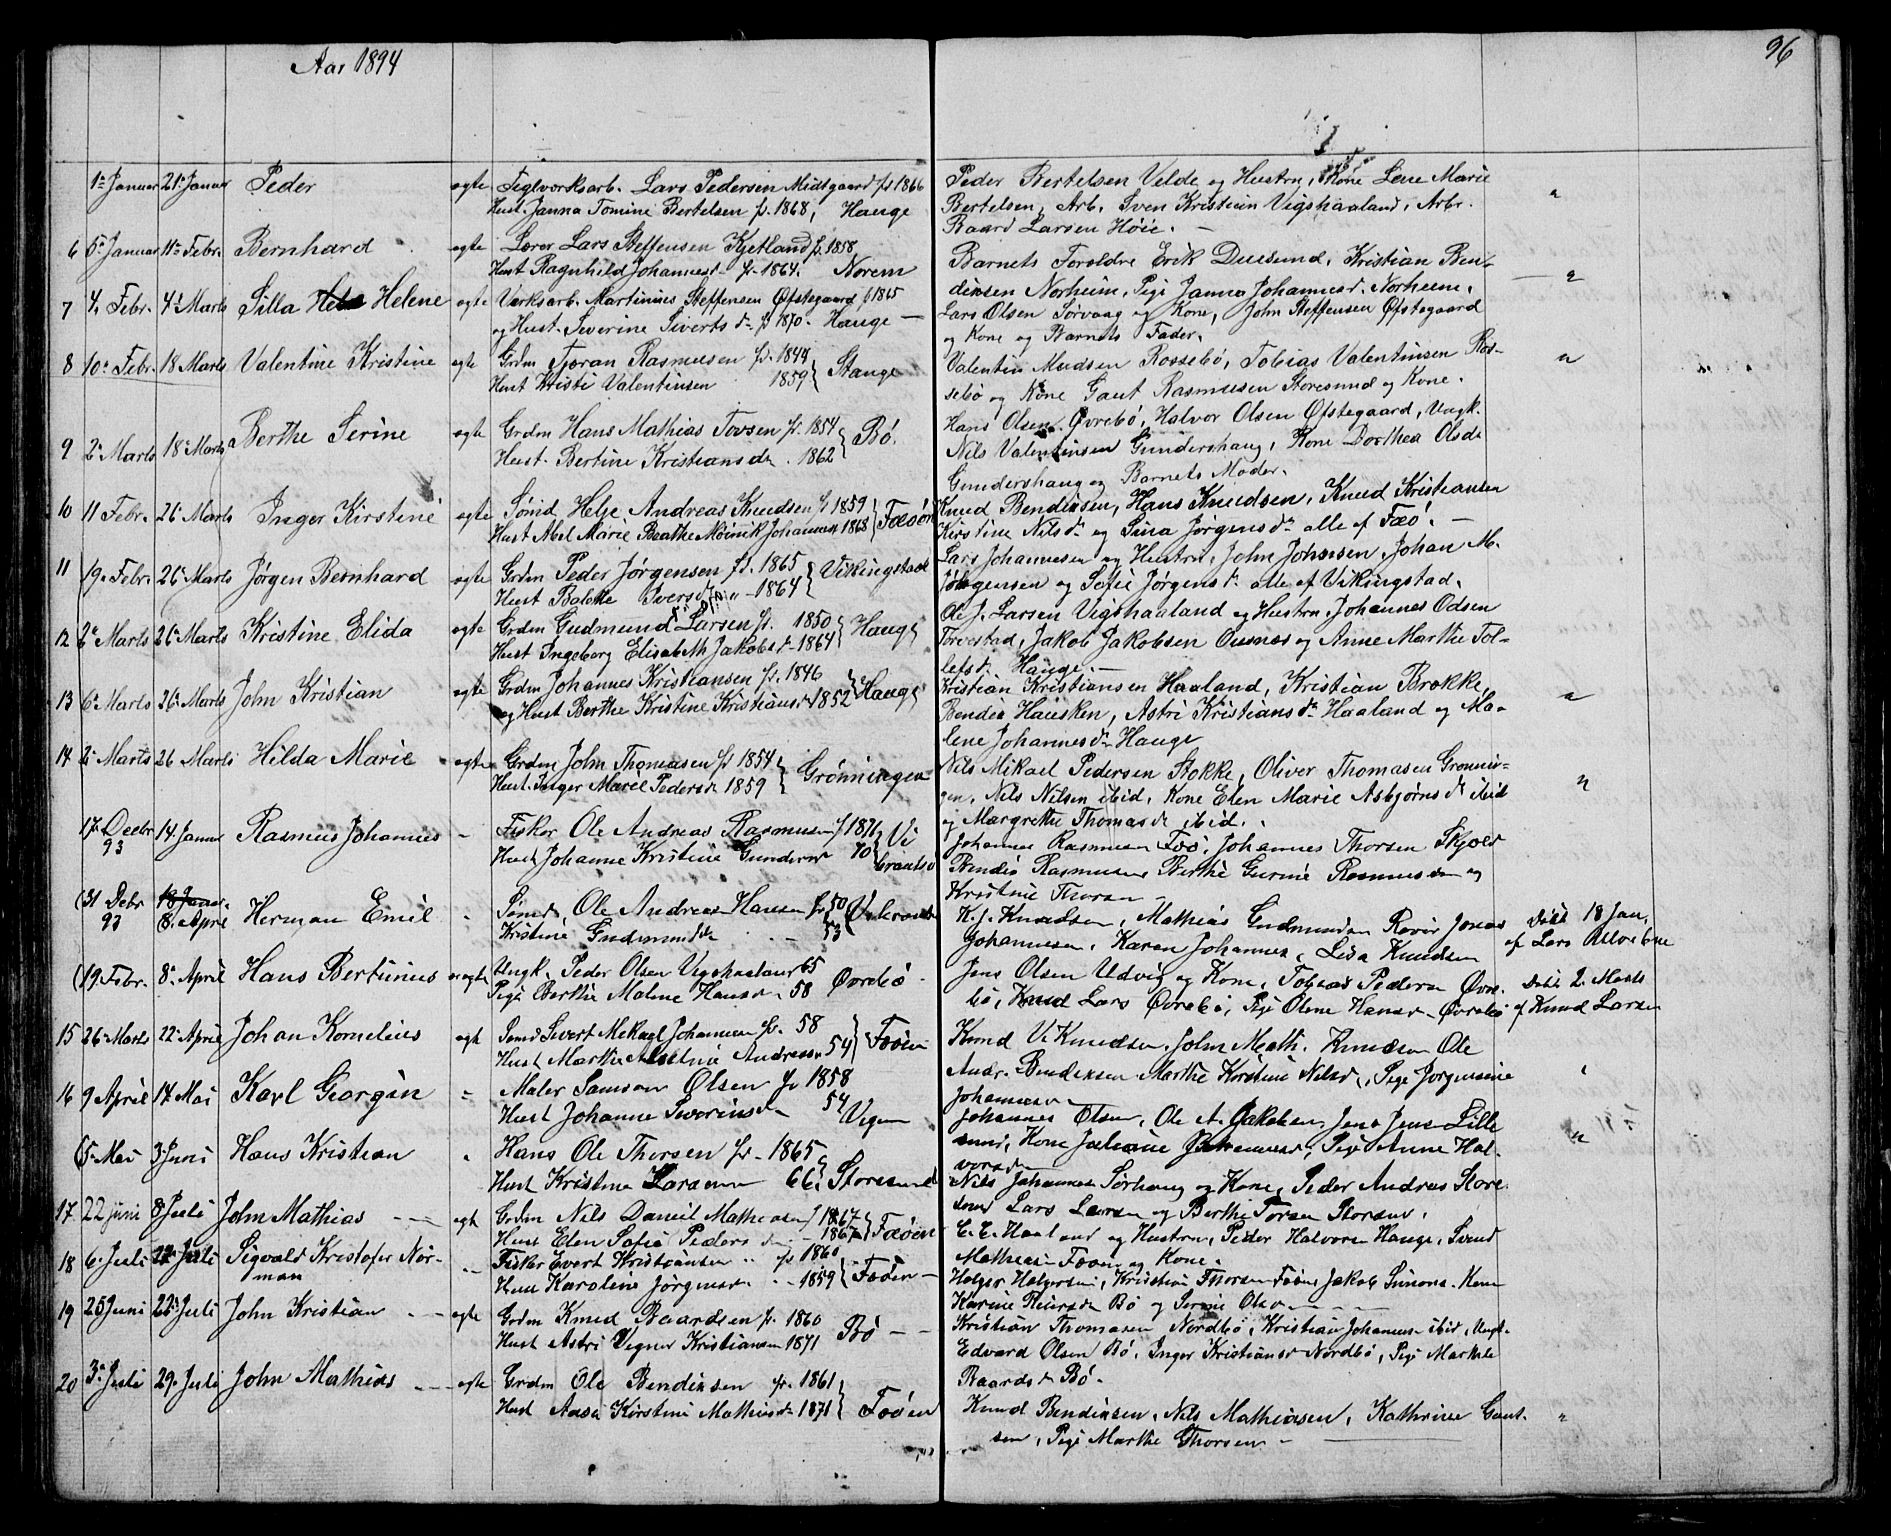 Aar 1894
96
1. Januar 21. Januar Peder ægte Teglværksarb. Lars Pedersen Midtgaard f. 1866
Hust. Janna Tomine Bertelsen f. 1868, Hauge
Peder Bertelsen Velde og Hustru, Kone Lene Marie
Bertelsen, Arb. Sven Kristian Vigshaaland, Arbr.
Baard Larsen Höie. "
6 5. Januar 11. Febr. Bernhard ægte Lærer Lars Steffensen Kjetland f. 1858
Hust Ragnhild Johannesd. f. 1864. Norem
Barnets Forældre Erik Duesund, Kristian Ben-
diksen Norheim, Pige Janna Johannesd. Norheim, "
7 4. Febr. 4. Marts Silla Helene ægte Værksarb. Martinius Steffensen Øfstegaard f. 1865
og Hust. Severine Siverts dr f. 1870. Hauge
Lars Olsen Sørvaag og Kone, John Steffensen Øfstegaard
og Kone og Barnets Fader.
8 10. Febr. 18 Marts Valentine Kristine ægte Grdm Tjøran Rasmussen f. 1844
Hust Kristi Valentinsen 1859 Stange
Valentin Rossebö, Tobias Valentinsen Ros-
sebö og Kone Gaut Rasmussen Storesund og Kone. "
9 2. Marts 18. Marts Berthe Serine ægte Grdm Hans Mathias Tovsen f. 1854
Hust. Bertine Kristiansdr. 1862 Bö.
Hans Olsen Øvrebö, Halvor Olsen Øfstegaard, Ungk.
Nils Valentinsen Gundershaug, Kone Dorthea Olsdr
Gundershaug og Barnets Moder.
10 11 Febr. 26. Marts Inger Kirstine ægte Sömd Helge Andreas Knudsen f. 1859
Hust Abel Marie Beathe Johannesen 1868 Fæöen
Knud Bendiksen, Hans Knudsen, Knud Kristiansen
Kirstine Nilsdr og Sina Jørgensdr alle af Fæö.
11 19. Febr. 26. Marts Jørgen Bernhard ægte Grdm Peder Jørgensen f. 1865
Hust Bolette Iversdr 1864 Vikingstad
Lars Johannesen og Hustru, John Johnsen, Johan M.
Jørgensen og Sofie Jørgensdr alle af Vikingstad.
12 2. Marts 26. Marts Kristine Elida ægte Grdm Gudmund Larsen f. 1850
Hust Ingeborg Elisabeth Jakobsd. 1864 Hauge
Ole J. Larsen Vigshaaland og Hustru, Johannes Odsen
Torvestad, Jakob Jakobsen Ousnes og Anne Marthe Tol-
lefsdr Hauge.
13 6. Marts 26. Marts John Kristian ægte Grdm Johannes Kristiansen f. 1846
og Hust Berthe Kristine Kristiansdr 1852 Hauge
Kristian Kristiansen Haaland, Kristian Brekke,
Bendix Hausken, Astri Kristiansdr Haaland og Ma-
lene Johannesdr Hauge "
14 2. Marts 26 Marts Hilda Marie ægte Grdm John Thomassen f. 1854
Hust. Inger Marie Pedersdr 1859 Grönningen
Nils Mikael Pedersen Stokke, Oliver Thomasen Grönnin-
gen, Nils Nilsen ibid, Kone Elen Marie Asbjørnsdr ibid
og Margrethe Thomasdr ibid. "
17. Decbr 93 14. Januar Rasmus Johannes " Fisker Ole Andreas Rasmussen f. 1871
Hust Johanne Kristine Gundersen 70
Johannes Rasmussen Föö, Johannes Thorsen Skjold
Bendix Rasmussen Berthe Gurine Rasmusdr og
Kristine Thorsn
31 Debr 93 8. April Herman Emil " Sömd. Ole Andreas Hansen f. 50
Kristine Gudmundsdr 53
K. J. Knudsen, Mathias Gudmundsen Røvær Jonas
Johannesen, Karen Johannes, Lisa Knudsen
Döbt 18 Jan.
af Lars
19. Febr. 8. April Hans Bertinius uægte Ungk. Peder Olsen Vigshaaland 65
Pige Berthe Malene Hansd. 58 Øvrebö
Jens Olsen Udvig og Kone, Tobias Pedersen Øvre-
bö, Knud Lars Øvrebö, Pige Olene Hansd. Øvrebö
Döbt 2. Marts
af Knud Larsen
15 26. Marts 22. April Johan Kornelius ægt Sömd Sivert Mikael Johannesen f. 58
Hust Marthe Andreasen 54 Fæöen
Knud V. Knudsen, John Math. Knudsen Ole
Andr. Bendiksen Marthe Kirstine Nilsd, Pige Jørgensine
Johannesdr
16 9 April 14. Mai Karl Georgin " Maler Samson Olsen f. 1858
Hust Johanne Severinsdr 54
Johannes Olsen, Ole A. Jakobsen, Jens Jens Lille
sund, Kone Juliane Johannesd, Pige Anne Hal-
vorsdr "
5. Mai 3. Juni Hans Kristian " Hans Ole Thorsen f. 1865
Hust Kristine Larsen 66. Storesund
Nils Johannes Sørhaug og Kone, Peder Andreas Store-
sund Lars Larsen og Berthe Torsen Storsun.
17 22 juni 8 Juli John Mathias ægt Grdm Nils Daniel Mathiasen f. 1867
Hust Elen Sofie Pedersdr 1867 Fæöen
E. E. Haaland og Hustru, Peder Halvorsen Hauge, Svend
Mathiasen Föön og Kone.
18 6. Juli 22. Juli Sigvald Kristofer Nor-
man " Fisker Evert Kristiansen f. 1860
Hust Karoline Jørgensdr 1859 Fæöen
Holger Holgersen, Kristian Thorsen Föön, Jakob Simons. Kone
Karine Reiersdr Bö og Serine Olsen
19 25 Juni 22. Juli John Kristian ægte Grdm Knud Baardsen f. 1860
Hust Astri Vegner Kristiansen 1871 Bö
Kristian Thomasen Nordbö, Kristian Johannes. ibid, Ungk.
Edvard Olsen Bö, Inger Kristiansd Nordbö, Pige Marthe
Baardsdr Bö.
20 3. Juli 29. Juli John Mathias ægte Grdm Ole Bendiksen f. 1861
Hust Aasa Kirstine Mathiasdr 1871 Fæöen
Knud Bendiksen, Nils Mathiasen, Kathrine Gaut-
sen, Pige Marthe Thorsen "